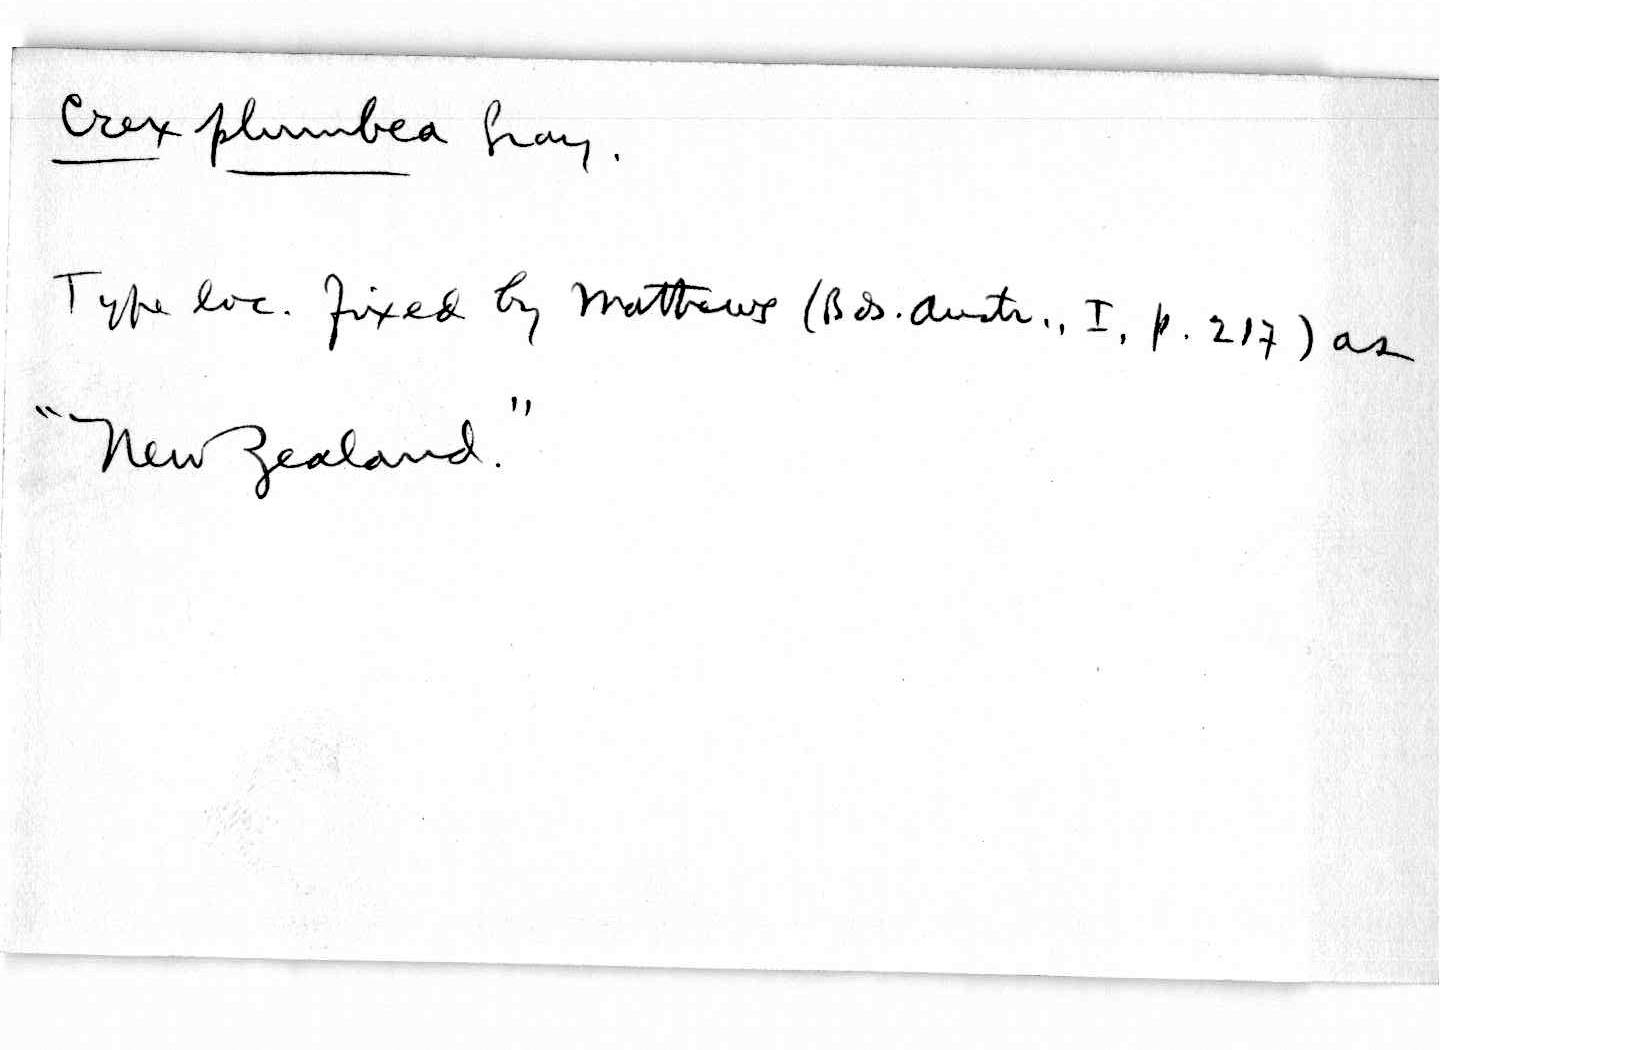 Crex plumbea Gray.
Type loc. fixed by Mathews (Bds. Austr., I, p. 217) as
"New Zealand."